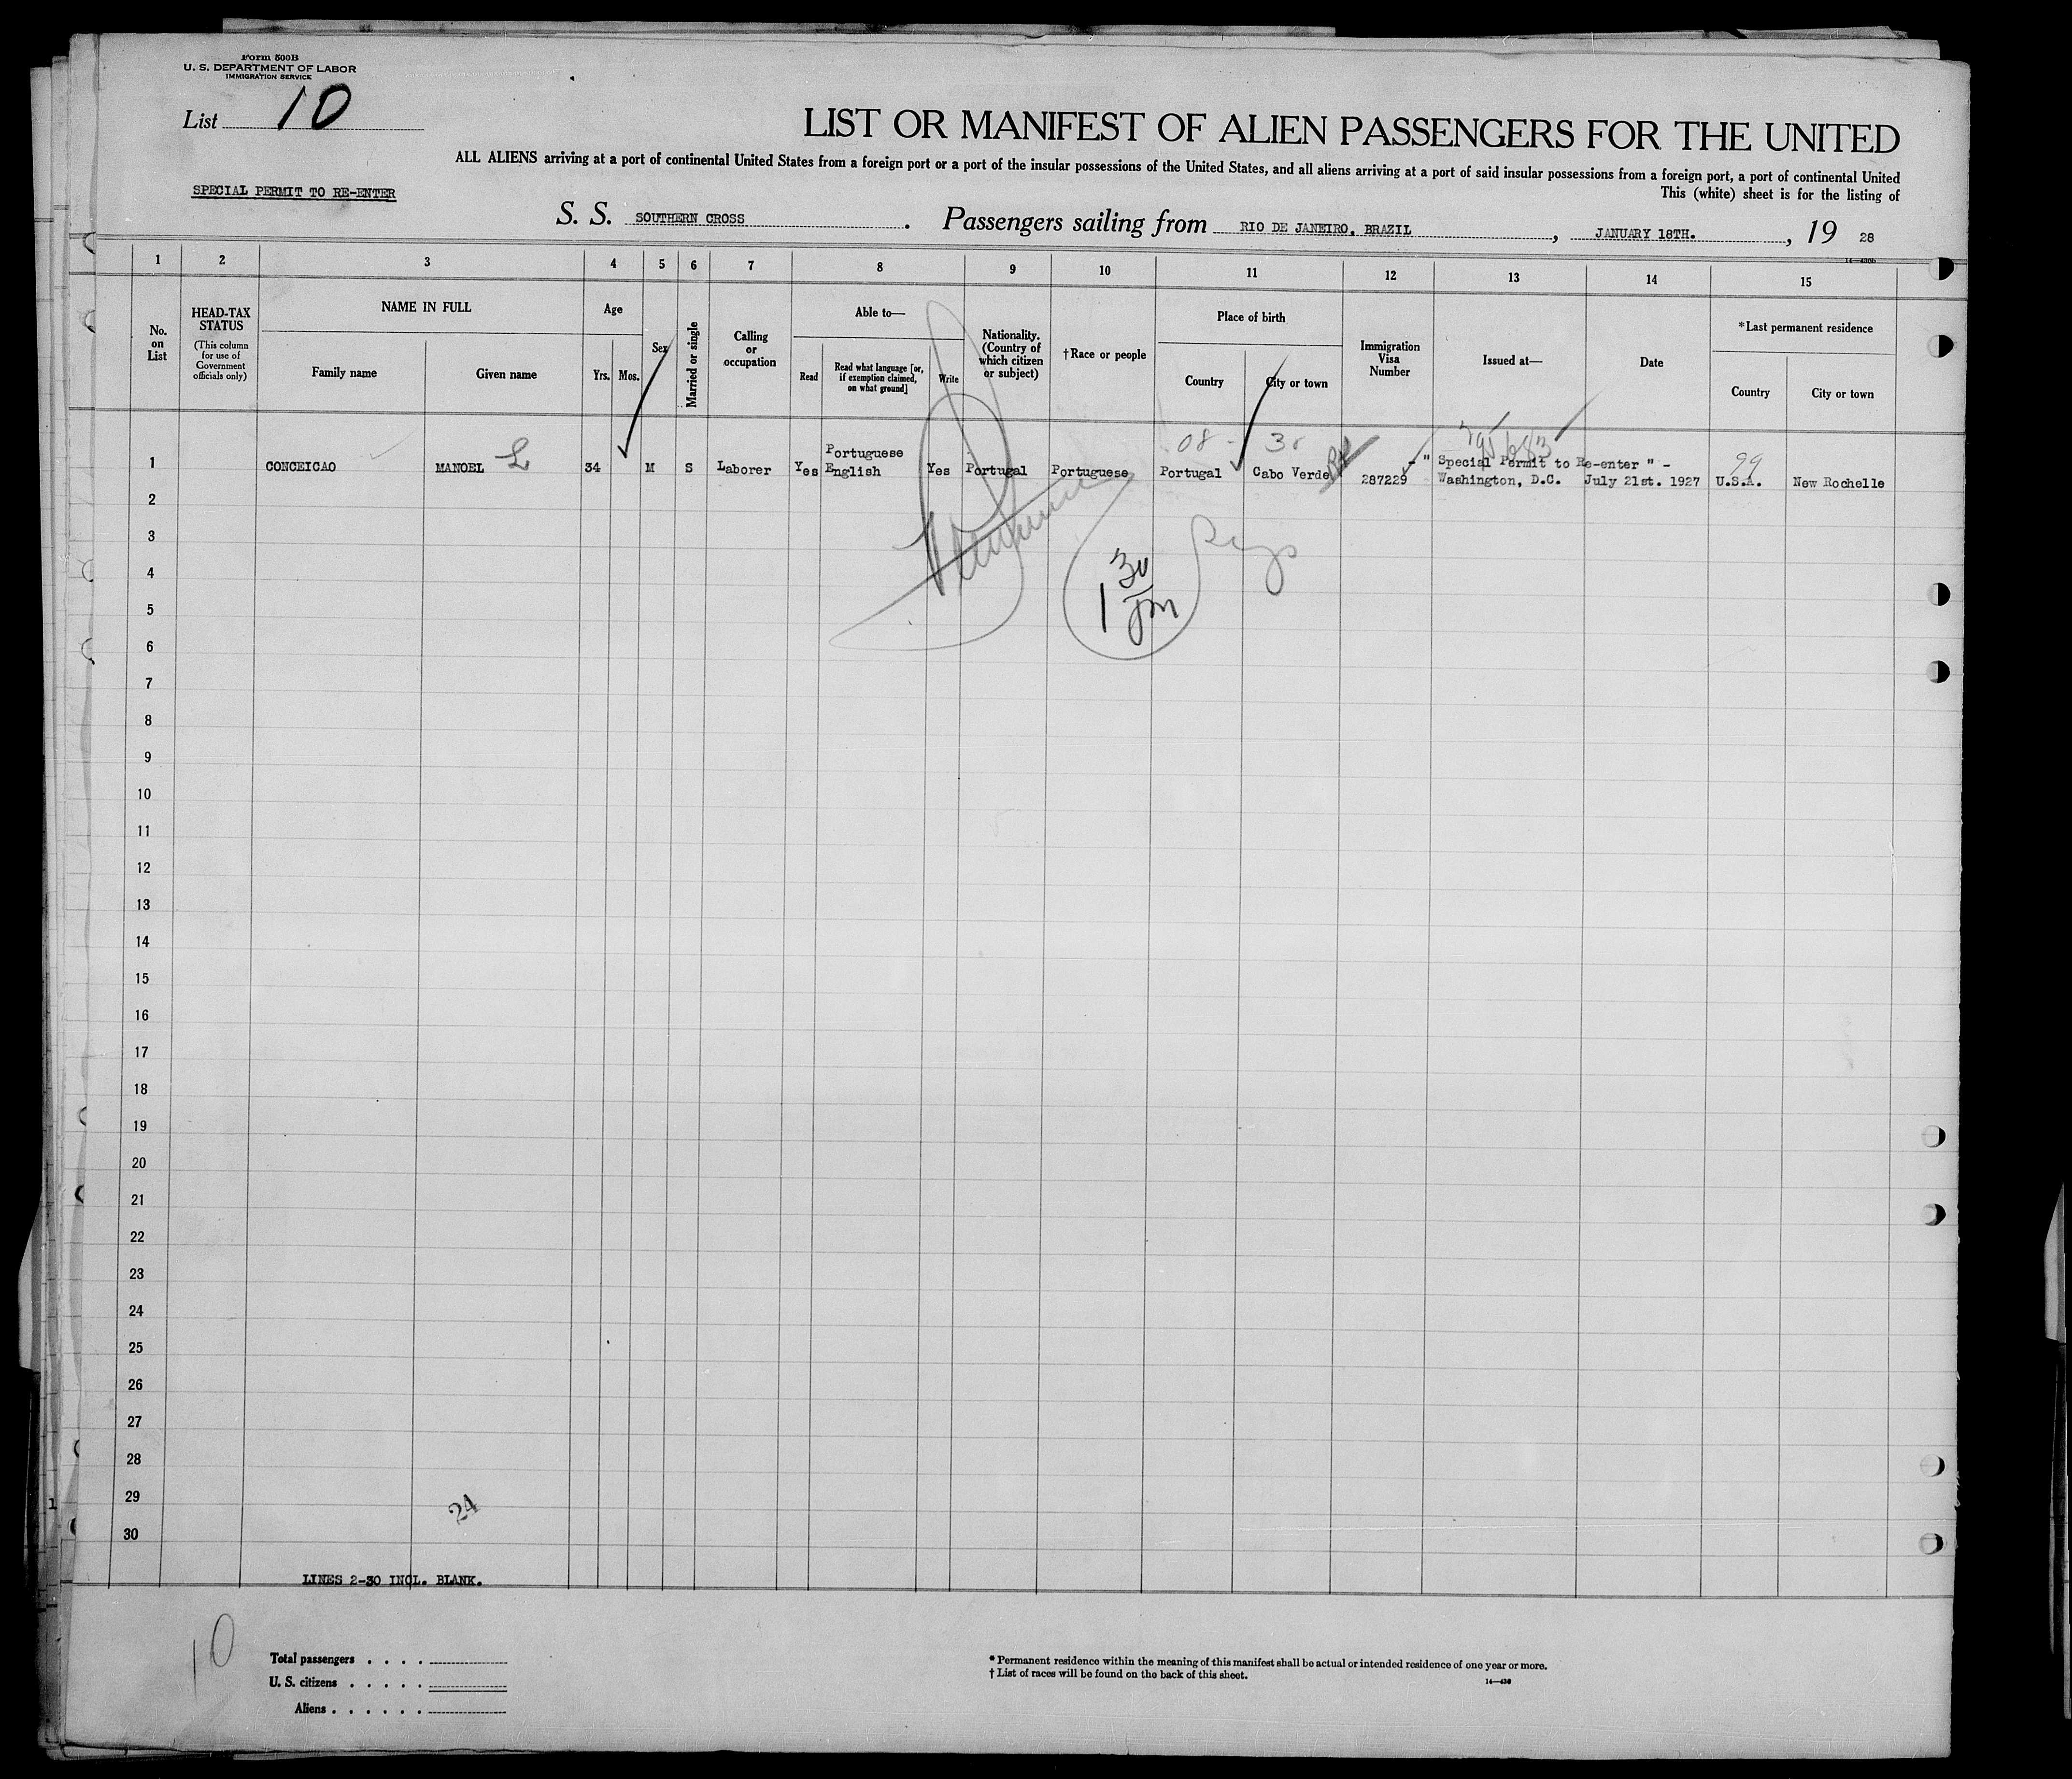 Form 500B
U. S. DEPARTMENT OF LABOR
IMMIGRATION SERVICE
List 10
LIST OR MANIFEST OF ALIEN PASSENGERS FOR THE UNITED
ALL ALIENS arriving at a port of continental United States from a foreign port or a port of the insular possessions of the United States, and all aliens arriving at a port of said insular possessions from a foreign port, a port of continental United
This (white) sheet is for the listing of
SPECIAL PERMIT TO RE-ENTER
S. S. SOUTHERN CROSS. Passengers sailing from RIO DE JANEIRO, BRAZIL, JANUARY 18TH., 19 28
1 2 3 4 5 6 7 8 9 10 11 12 13 14 15
No. on List
HEAD-TAX STATUS
(This column for use of Government officials only)
NAME IN FULL
Family name
Given name
Age
Yrs.
Mos.
Sex
Married or single
Calling or occupation
Able to—
Read
Read what language [or, if exemption claimed, on what ground]
Write
Nationality. (Country of which citizen or subject)
†Race or people
Place of birth
Country
City or town
Immigration Visa Number
Issued at—
Date
*Last permanent residence
Country
City or town
08 - 
99
1 CONCEICAO MANOEL L 34 M S Laborer Yes Portuguese English Yes Portugal Portuguese Portugal Cabo Verde 287229 - " Special Permit to Re-enter " - Washington, D.C. July 21st. 1927 U.S.A. New Rochelle
2
3
4
1 30 pm
5
6
7
8
9
10
11
12
13
14
15
16
17
18
19
20
21
22
23
24
25
26
27
28
29
24
30
LINES 2-30 INCL. BLANK.
10
Total passengers . . . .
U. S. citizens . . . . .
Aliens . . . . . .
* Permanent residence within the meaning of this manifest shall be actual or intended residence of one year or more.
† List of races will be found on the back of this sheet.